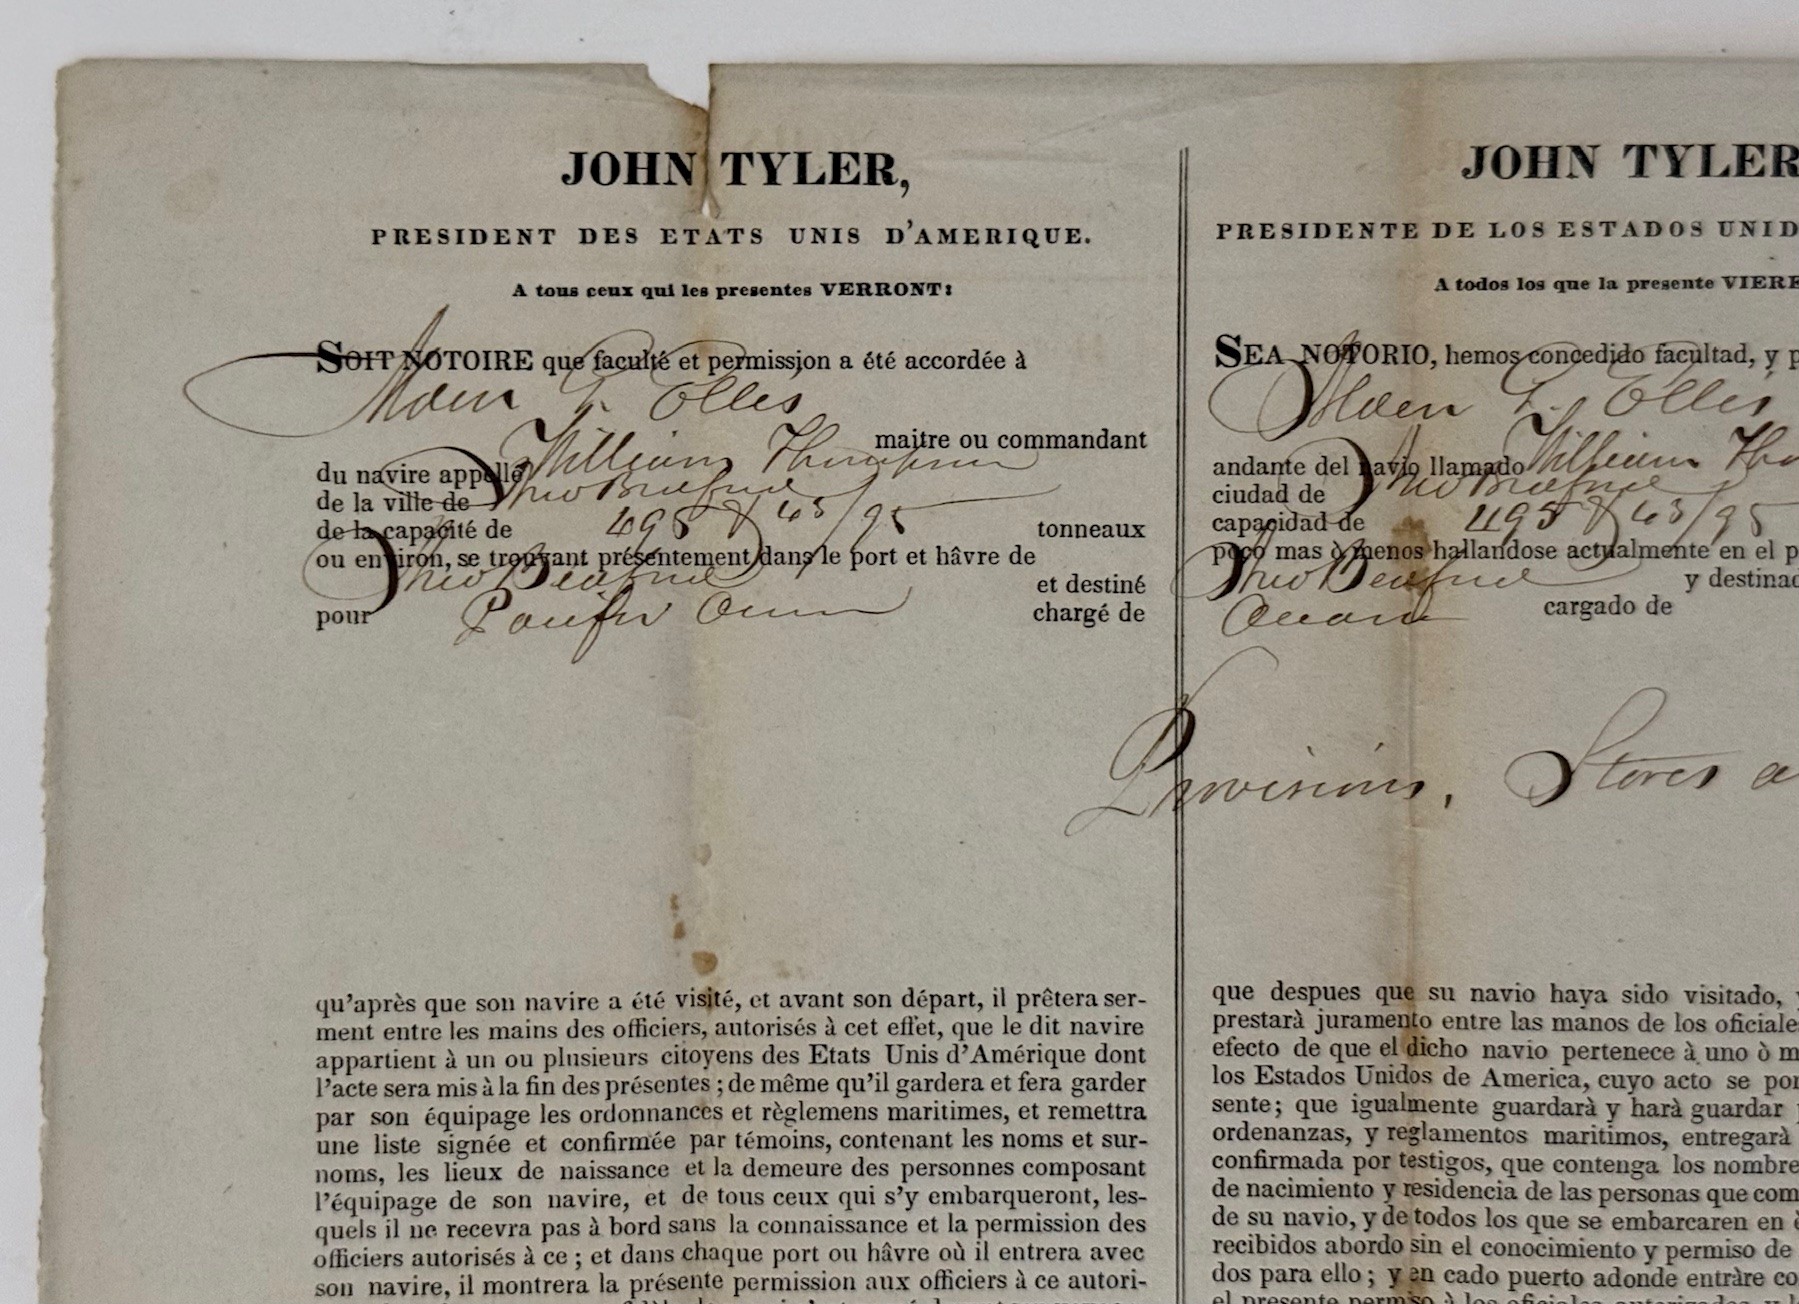 JOHN TYLER,
PRESIDENT DES ETATS UNIS D'AMERIQUE.
A tous ceux qui les presentes VERRONT:
SOIT NOTOIRE que faculté et permission a été accordée à
Alden T. Ellis
maitre ou commandant
du navire appellé William Thompson
de la ville de New Bedford
de la capacité de 495 & 43/95 tonneaux
ou environ, se trouvant présentement dans le port et hâvre de
New Bedford et destiné
pour Pacific Ocean chargé de
qu'après que son navire a été visité, et avant son départ, il prêtera ser-
ment entre les mains des officiers, autorisés à cet effet, que le dit navire
appartient à un ou plusieurs citoyens des Etats Unis d'Amérique dont
l'acte sera mis à la fin des présentes ; de même qu'il gardera et fera garder
par son équipage les ordonnances et règlemens maritimes, et remettra
une liste signée et confirmée par témoins, contenant les noms et sur-
noms, les lieux de naissance et la demeure des personnes composant
l'équipage de son navire, et de tous ceux qui s'y embarqueront, les-
quels il ne recevra pas à bord sans la connaissance et la permission des
officiers autorisés à ce ; et dans chaque port ou hâvre où il entrera avec
son navire, il montrera la présente permission aux officiers à ce autori-
JOHN TYLER
PRESIDENTE DE LOS ESTADOS UNID
A todos los que la presente VIERE
SEA NOTORIO, hemos concedido facultad, y p
Alden T. Ellis
andante del navio llamado William Tho
ciudad de New Bedford
capacidad de 495 & 43/95
poco mas ò menos hallandose actualmente en el p
New Bedford y destinad
Ocean cargado de
Provisions, Stores a
que despues que su navio haya sido visitado, y
prestarà juramento entre las manos de los oficiale
efecto de que el dicho navio pertenece à uno ò m
los Estados Unidos de America, cuyo acto se pon
sente; que igualmente guardarà y harà guardar
ordenanzas, y reglamentos maritimos, entregarà
confirmada por testigos, que contenga los nombre
de nacimiento y residencia de las personas que com
de su navio, y de todos los que se embarcaren en è
recibidos abordo sin el conocimiento y permiso de
dos para ello ; y en cado puerto adonde entràre co
el presente permiso à los oficiales